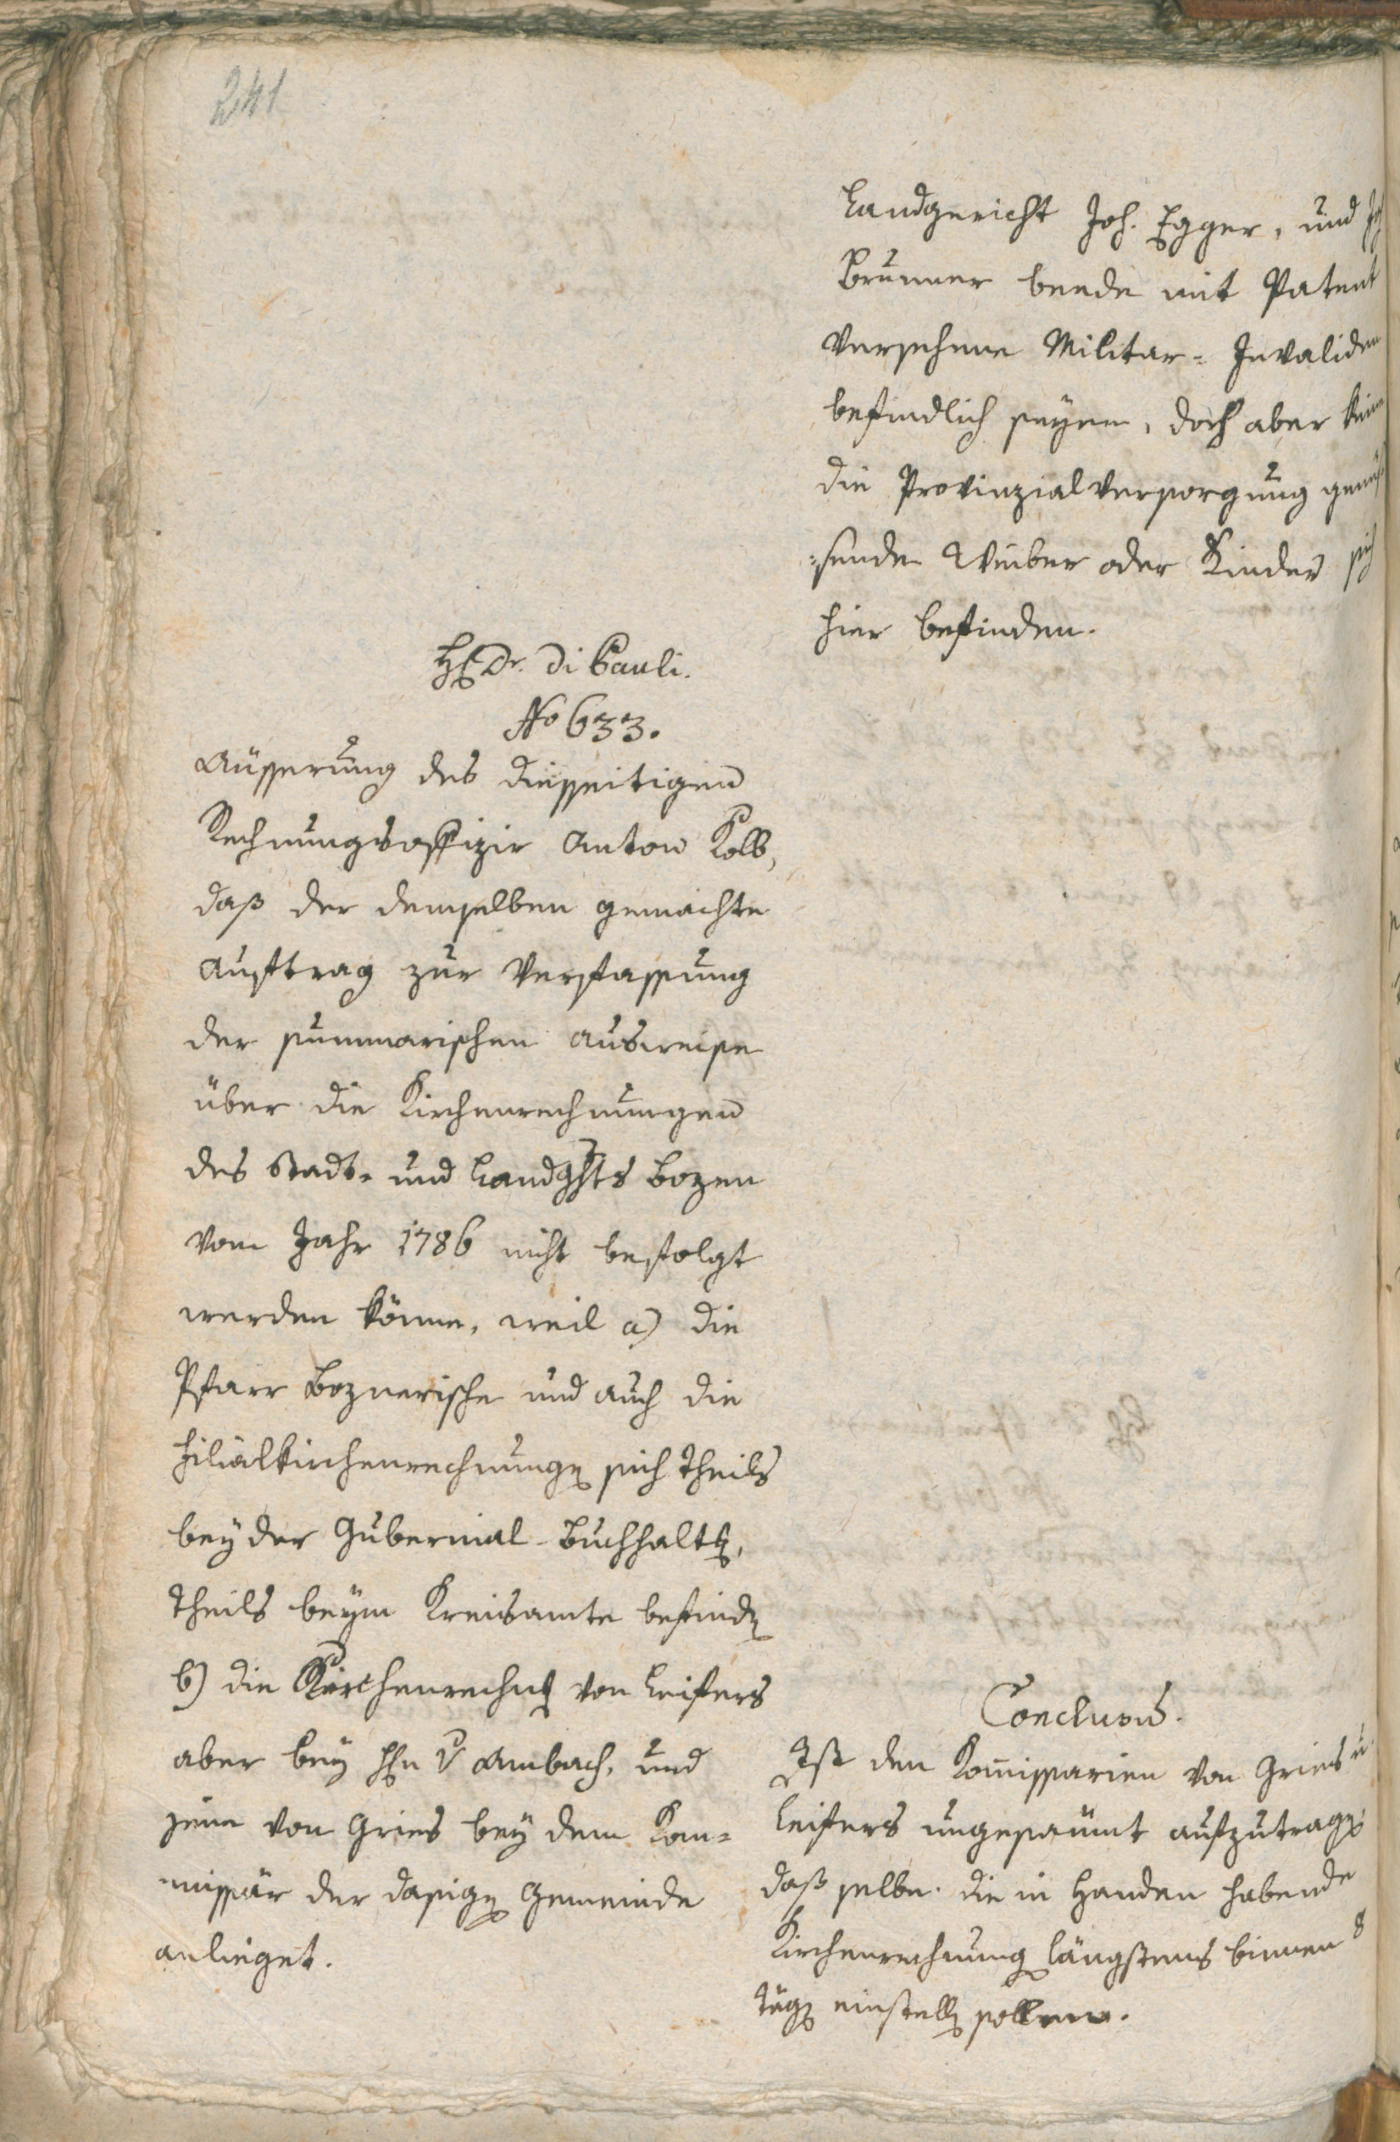 241
Landgericht Joh. Egger, und
Brunner beede mit Patent
versehene Militar- Invaliden
befindlich seyen, doch aber keine
die Provinzialversorgung genüs-
sende Weiber oder Kinder sich
hier befinden.
H. Dr. Di Pauli.
No 633.
Äusserung des diesseitigen
Rechnungsoffizir Anton Kolb,
daß der demselben gemachte
Auftrag zur Verfassung
der summarischen Ausweise
über die Kirchenrechnungen
des Stadt- und Landghts Bozen
vom Jahr 1786 nicht befolgt
werden könne, weil a) die
Pfarr Boznerische und auch die
Filialkirchenrechnungen sich theils
bey der Gubernial-Buchhaltg,
theils beym Kreisamte befinden
b) die Kirchenrechng von Leifers
aber bey Hn v Ambach, und
jene von Gries bey dem Kom-
missär der dasigen Gemeinde
anlieget.
Conclusum.
Ist den Kommissarien von Gries u.
Leifers ungesaumt aufzutragen
daß selbe die in Handen habende
Kirchenrechnung längstens binnen 8
tägen einstellen sollen.